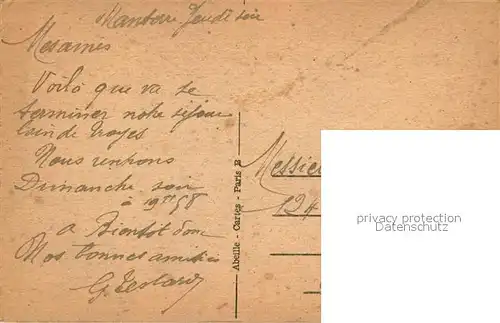 Nanterre Jeudi soir
Mes amies
Voilà que va se
terminer notre séjour
loin de Troyes
Nous rentrons
Dimanche soir
à 19H58
a Bientot donc
Mos bonnes amitiés
G. Testard
Abeille - Cartes - Paris
Messie
124
privacy protection
Datenschutz